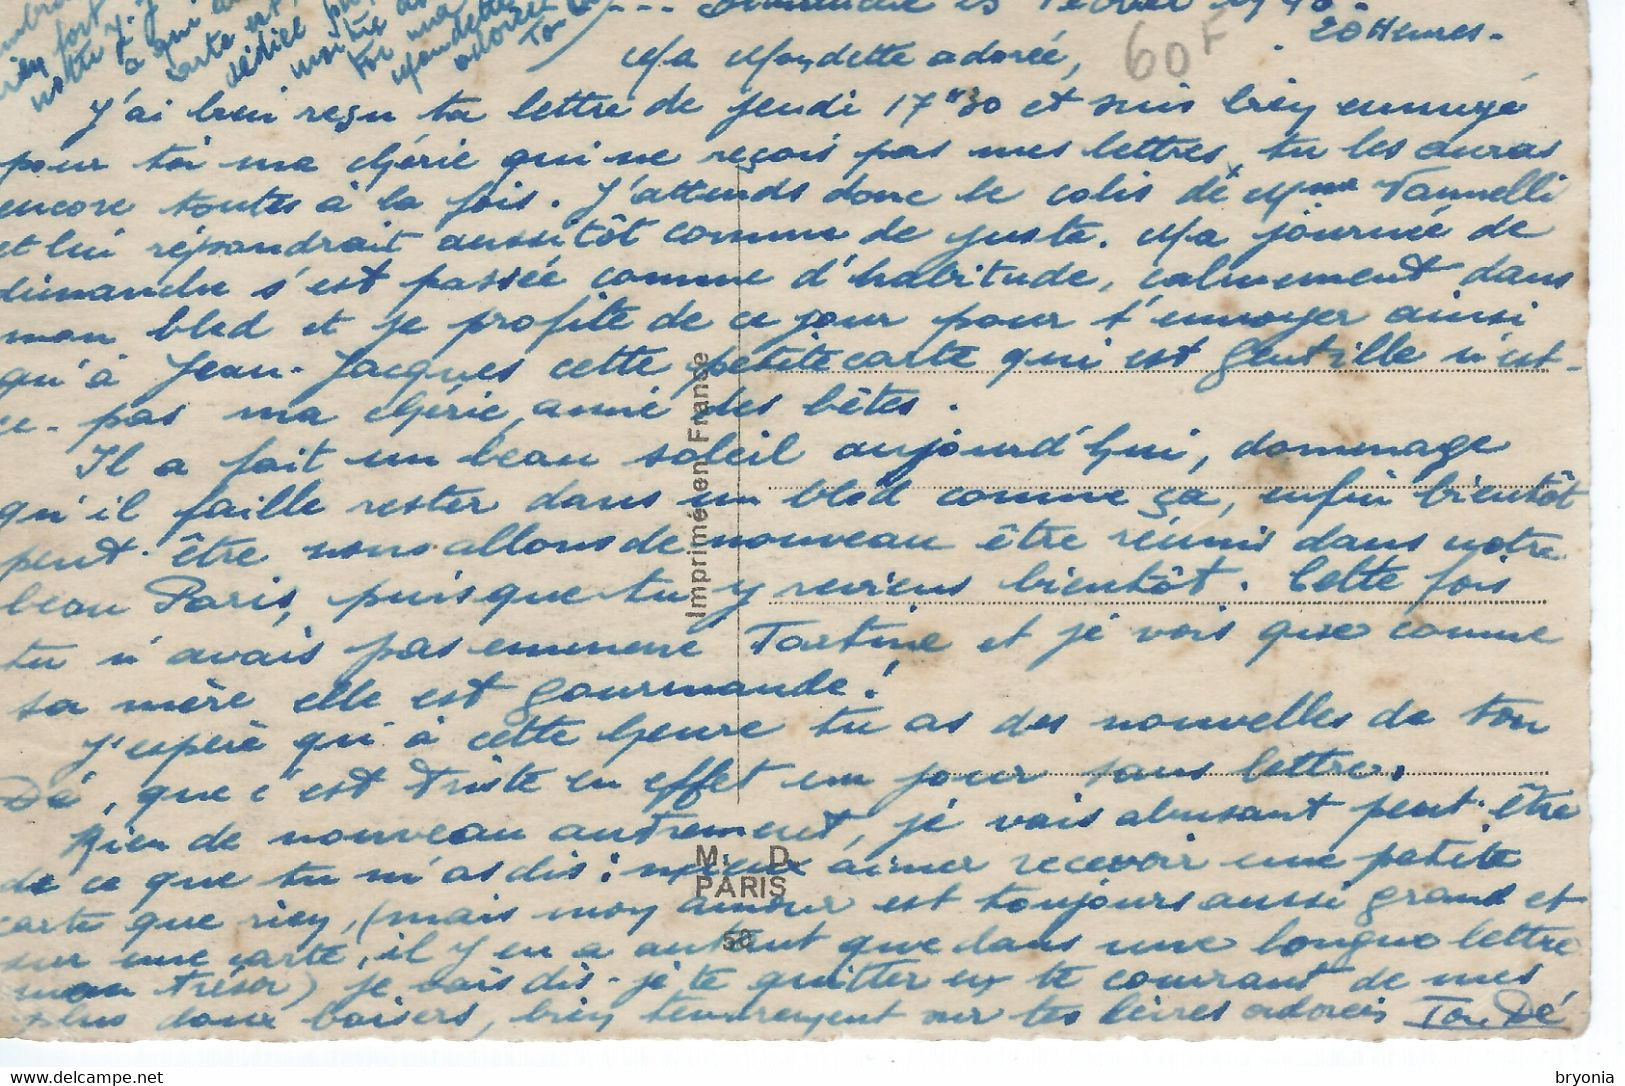 Dimanche 25 Février 1940.
20 Heures.
60F
Ma Mondette adorée,
J'ai bien reçu ta lettre de jeudi 17H30 et suis bien ennuyé
pour toi ma chérie qui ne reçois pas mes lettres, tu les auras
encore toutes à la fois. J'attends donc le colis de Mme Vannelli
et lui répondrait aussitôt comme de juste. Ma journée de
dimanche s'est passée comme d'habitude, calmement dans
mon bled et je profite de ce jour pour t'envoyer ainsi
qu'à Jean-Jacques cette petite carte qui est gentille n'est-
ce-pas ma chérie, amie des bêtes.
Il a fait un beau soleil aujourd'hui, dommage
qu'il faille rester dans un bled comme ça, enfin bientôt
peut-être nous allons de nouveau être réunis dans notre
beau Paris, puisque tu y reviens bientôt. Cette fois
tu n'avais pas emmené Tartine et je vois que comme
sa mère elle est gourmande!
J'espère qu'à cette heure tu as des nouvelles de ton
Dé, que c'est triste en effet un jour sans lettre.
Rien de nouveau autrement, je vais abusant peut-être
de ce que tu m'as dis: mieux aimer recevoir une petite
carte que rien, (mais mon amour est toujours aussi grand et
sur une carte, il y en a autant que dans une longue lettre
mon trésor) je vais dis-je te quitter en te couvrant de mes
plus doux baisers, bien tendrement sur tes lèvres adorées Ton Dé
Imprimé en France
M. D.
PARIS